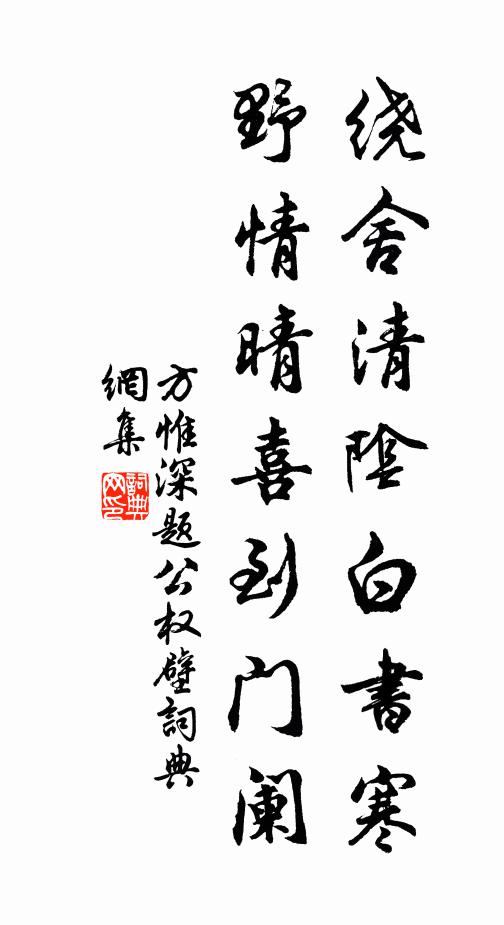 绕舍清阴白书寒
野情晴喜到门阑
方惟深题公权壁詞典
網集
詞典网印